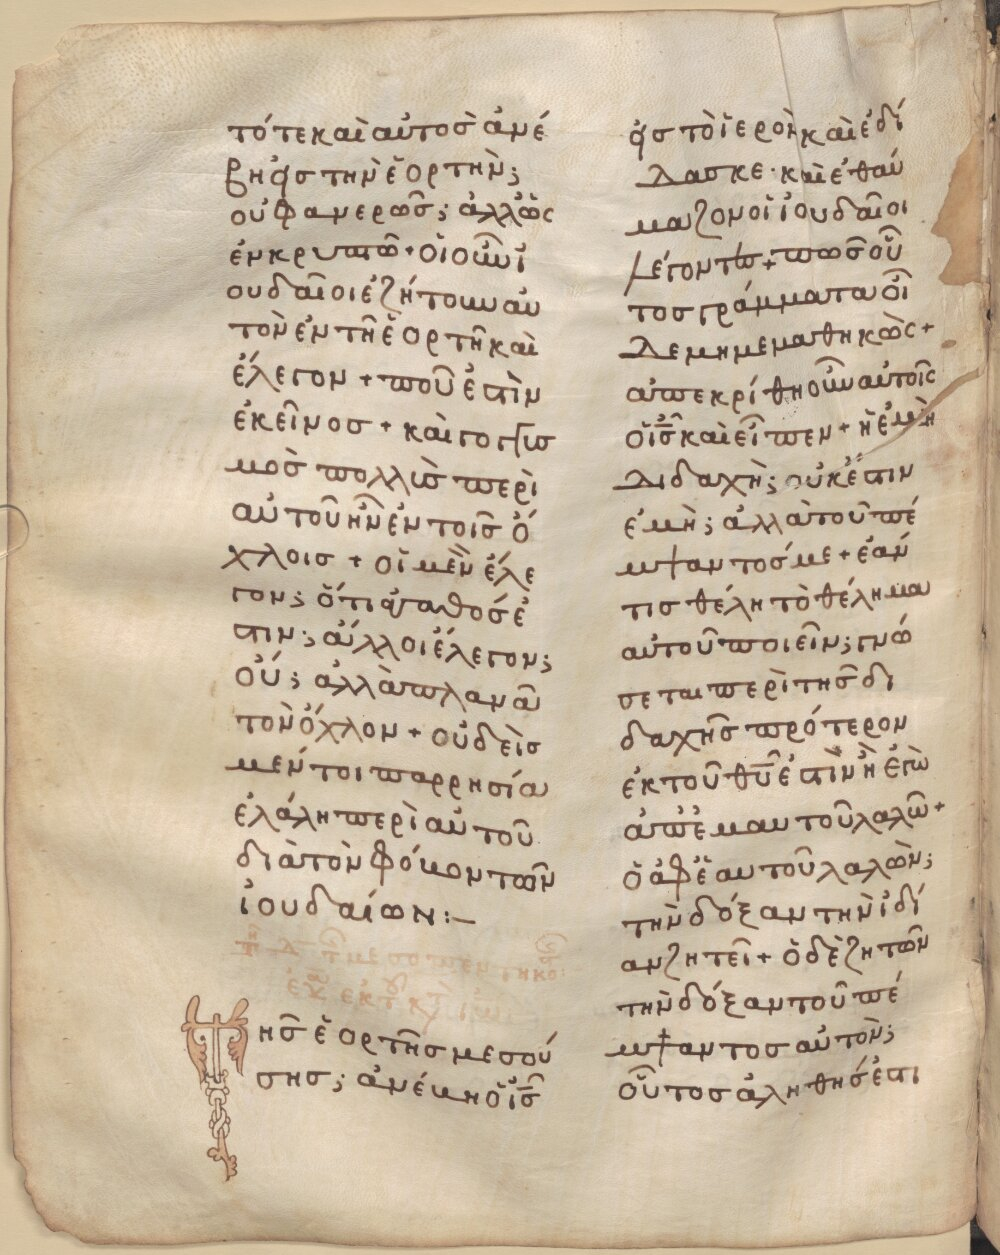 τότε καὶ αὐτὸσ ἀνέ
βη εἰσ τὴν ἑορτὴν;
οὐ φανερῶσ; ἀλλ' ὡς
ἐν κρυπτῶ + οἱ οὖν ἰ
ουδαῖοι ἐζήτουν αὐ
τὸν ἐν τῆ ἑορτῆ καὶ
ἔλεγον + ποῦ ἐστὶν
ἐκεῖνοσ + καὶ γογγυσ
μὸσ πολλὺσ περὶ
αὐτοῦ ἦν ἐν τοῖσ ὄ
χλοισ + οἱ μὲν ἔλε
γον; ὅτι ἀγαθόσ ἐ
στιν; ἄλλοι ἔλεγον;
οὔ; ἀλλὰ πλανᾶ
τὸν ὄχλον + οὐδεὶσ
μέντοι παρρησία
ἐλάλη περὶ αὐτοῦ
διὰ τὸν φόβον τῶν
ἰουδαίων:–
τῆ δ τῆσ μεσοπεντηκο
ἐκ τοῦ κτ ἰω
Τῆσ ἑορτῆσ μεσού
σησ; ἀνέβη ὁ ἰσ
εἰσ τὸ ἱερὸν καὶ ἐδί
δασκε· καὶ ἐθαύ
μαζον οἱ ἰουδαῖοι
λέγοντεσ + πῶσ οὗ
τοσ γράμματα οἶ
δε μὴ μεμαθηκὼς +
ἀπεκρίθη οὖν αὐτοῖς
ὁ ἰσ καὶ εἶπεν + ἡ ἐμὴ
διδαχὴ; οὐκ ἔστιν
ἐμὴ; ἀλλὰ τοῦ πέ
μψαντόσ με + ἐάν
τισ θέλη τὸ θέλημα
αὐτοῦ ποιεῖν; γνώ
σεται περὶ τῆσ δι
δαχῆσ πρότερον
ἐκ τοῦ θυ ἐστὶν ἢ ἐγὼ
ἀπ' ἐμαυτοῦ λαλῶ +
ὁ ἀφ' ἑαυτοῦ λαλῶν;
τὴν δόξαν τὴν ἰδί
αν ζητεῖ + ὁ δὲ ζητῶν
τὴν δόξαν τοῦ πέ
μψαντοσ αὐτὸν;
οὗτοσ ἀληθήσ ἐστι